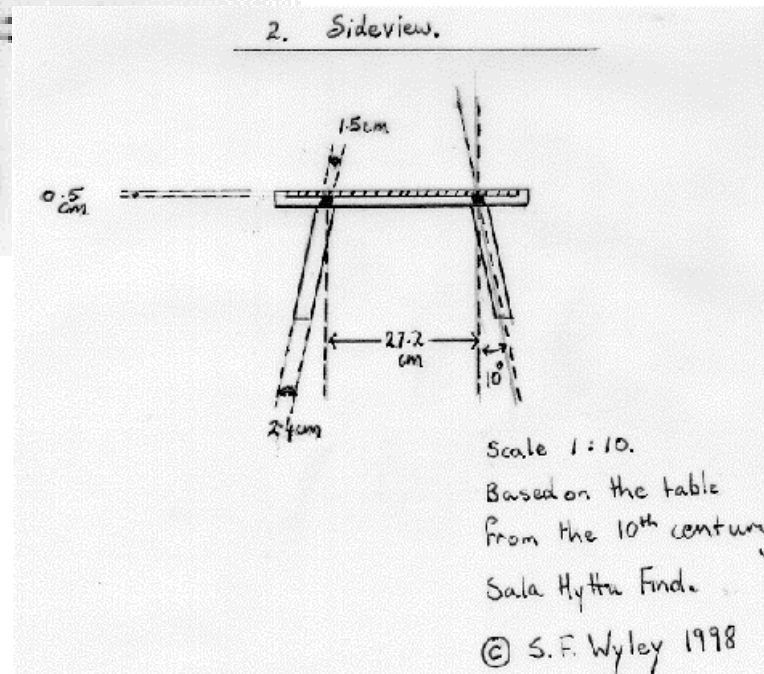 2. Sideview.
1.5cm
0.5
cm
27.2
cm
10°
2.4cm
Scale 1:10.
Based on the table
from the 10th century
Sala Hytta Find.
© S.F. Wyley 1998